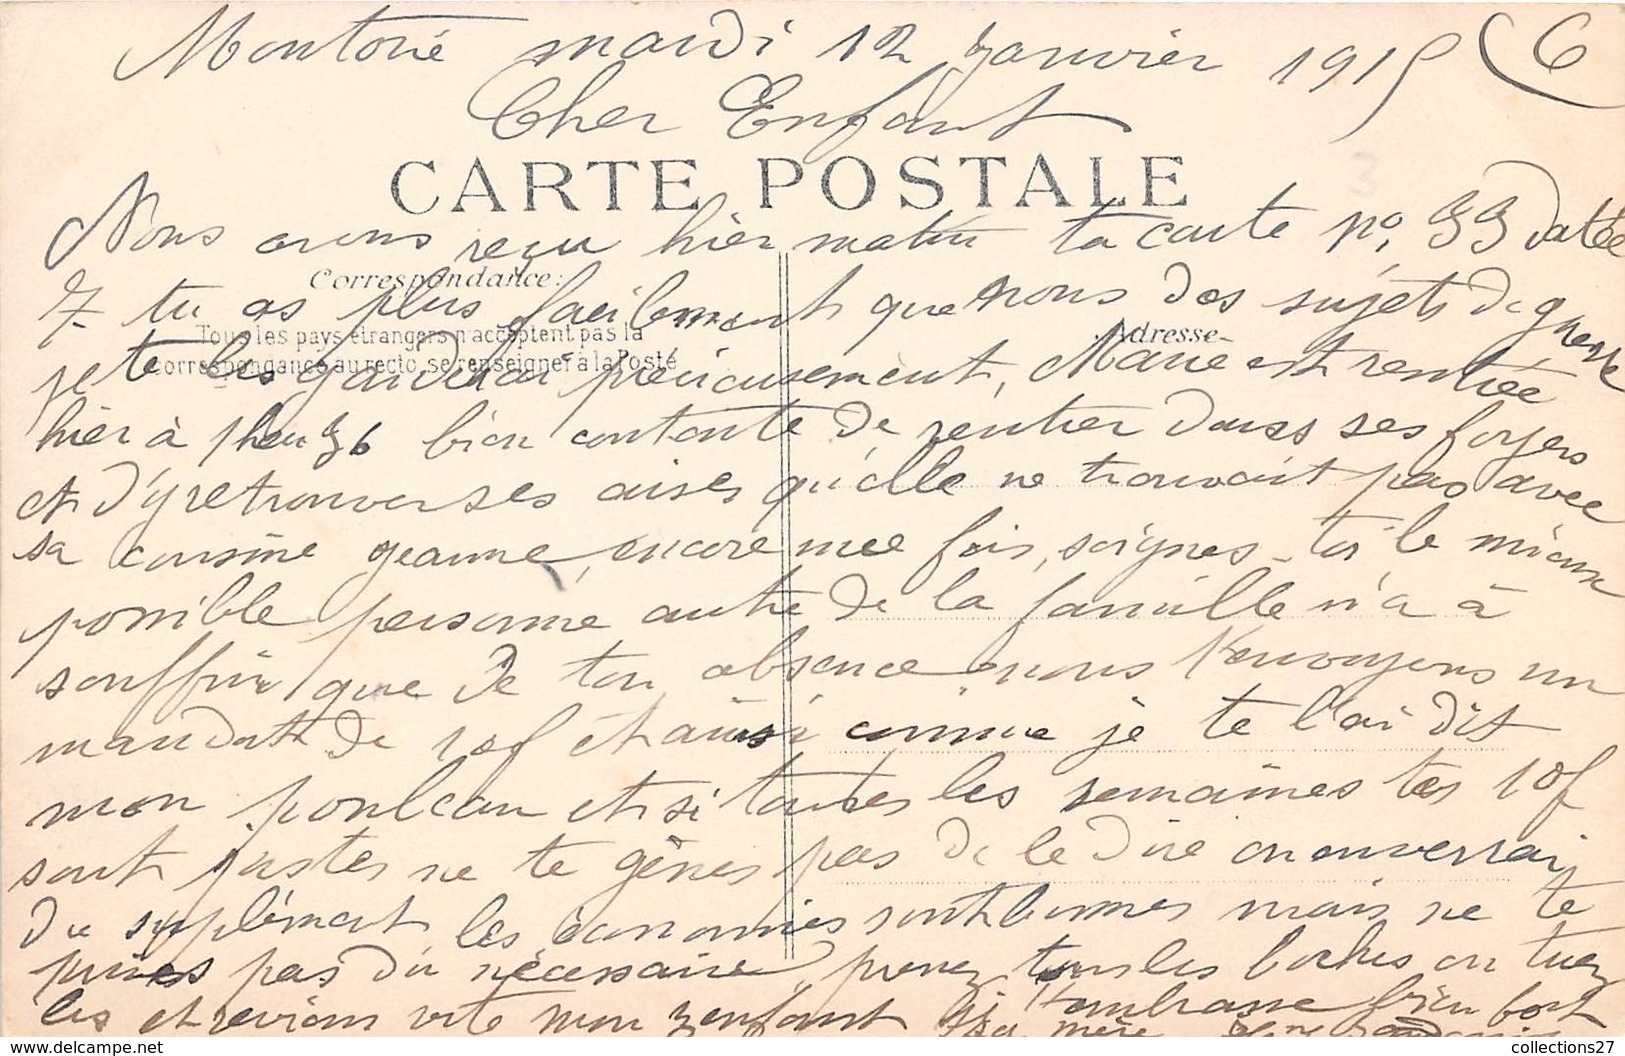 Montoire mardi 12 Janvier 1915 6
Cher Enfant
CARTE POSTALE
Nous avons reçu hier matin ta carte no, 33 datée
7 tu as plus facilement que nous des sujets de guerre
Correspondance:
Tous les pays étrangers n'acceptent pas la
correspondance au recto, se renseigner à la Poste
Adresse
je te les garderai précieusement, Marie est rentrée
hier à bien contente de rentrer dans ses foyers
et d'y retrouver ses aises qu'elle ne trouvait pas avec
sa cousine Jeanne, encore une fois, soignes-toi le mieux
possible personne autre de la famille n'a à
souffrir que de ton absence nous t'envoyons un
mandat de 10f et ainsi comme je te l'ai dit
mon pouleau et si toutes les semaines tes 10f
sont justes ne te gènes pas de le dire on enverrai
du supplément les économies sont bonnes mais ne te
prives pas du nécessaire, prenez tous les boches ou tuez
les et reviens vite mon enfant t'embrasse bien fort
mère
collections27